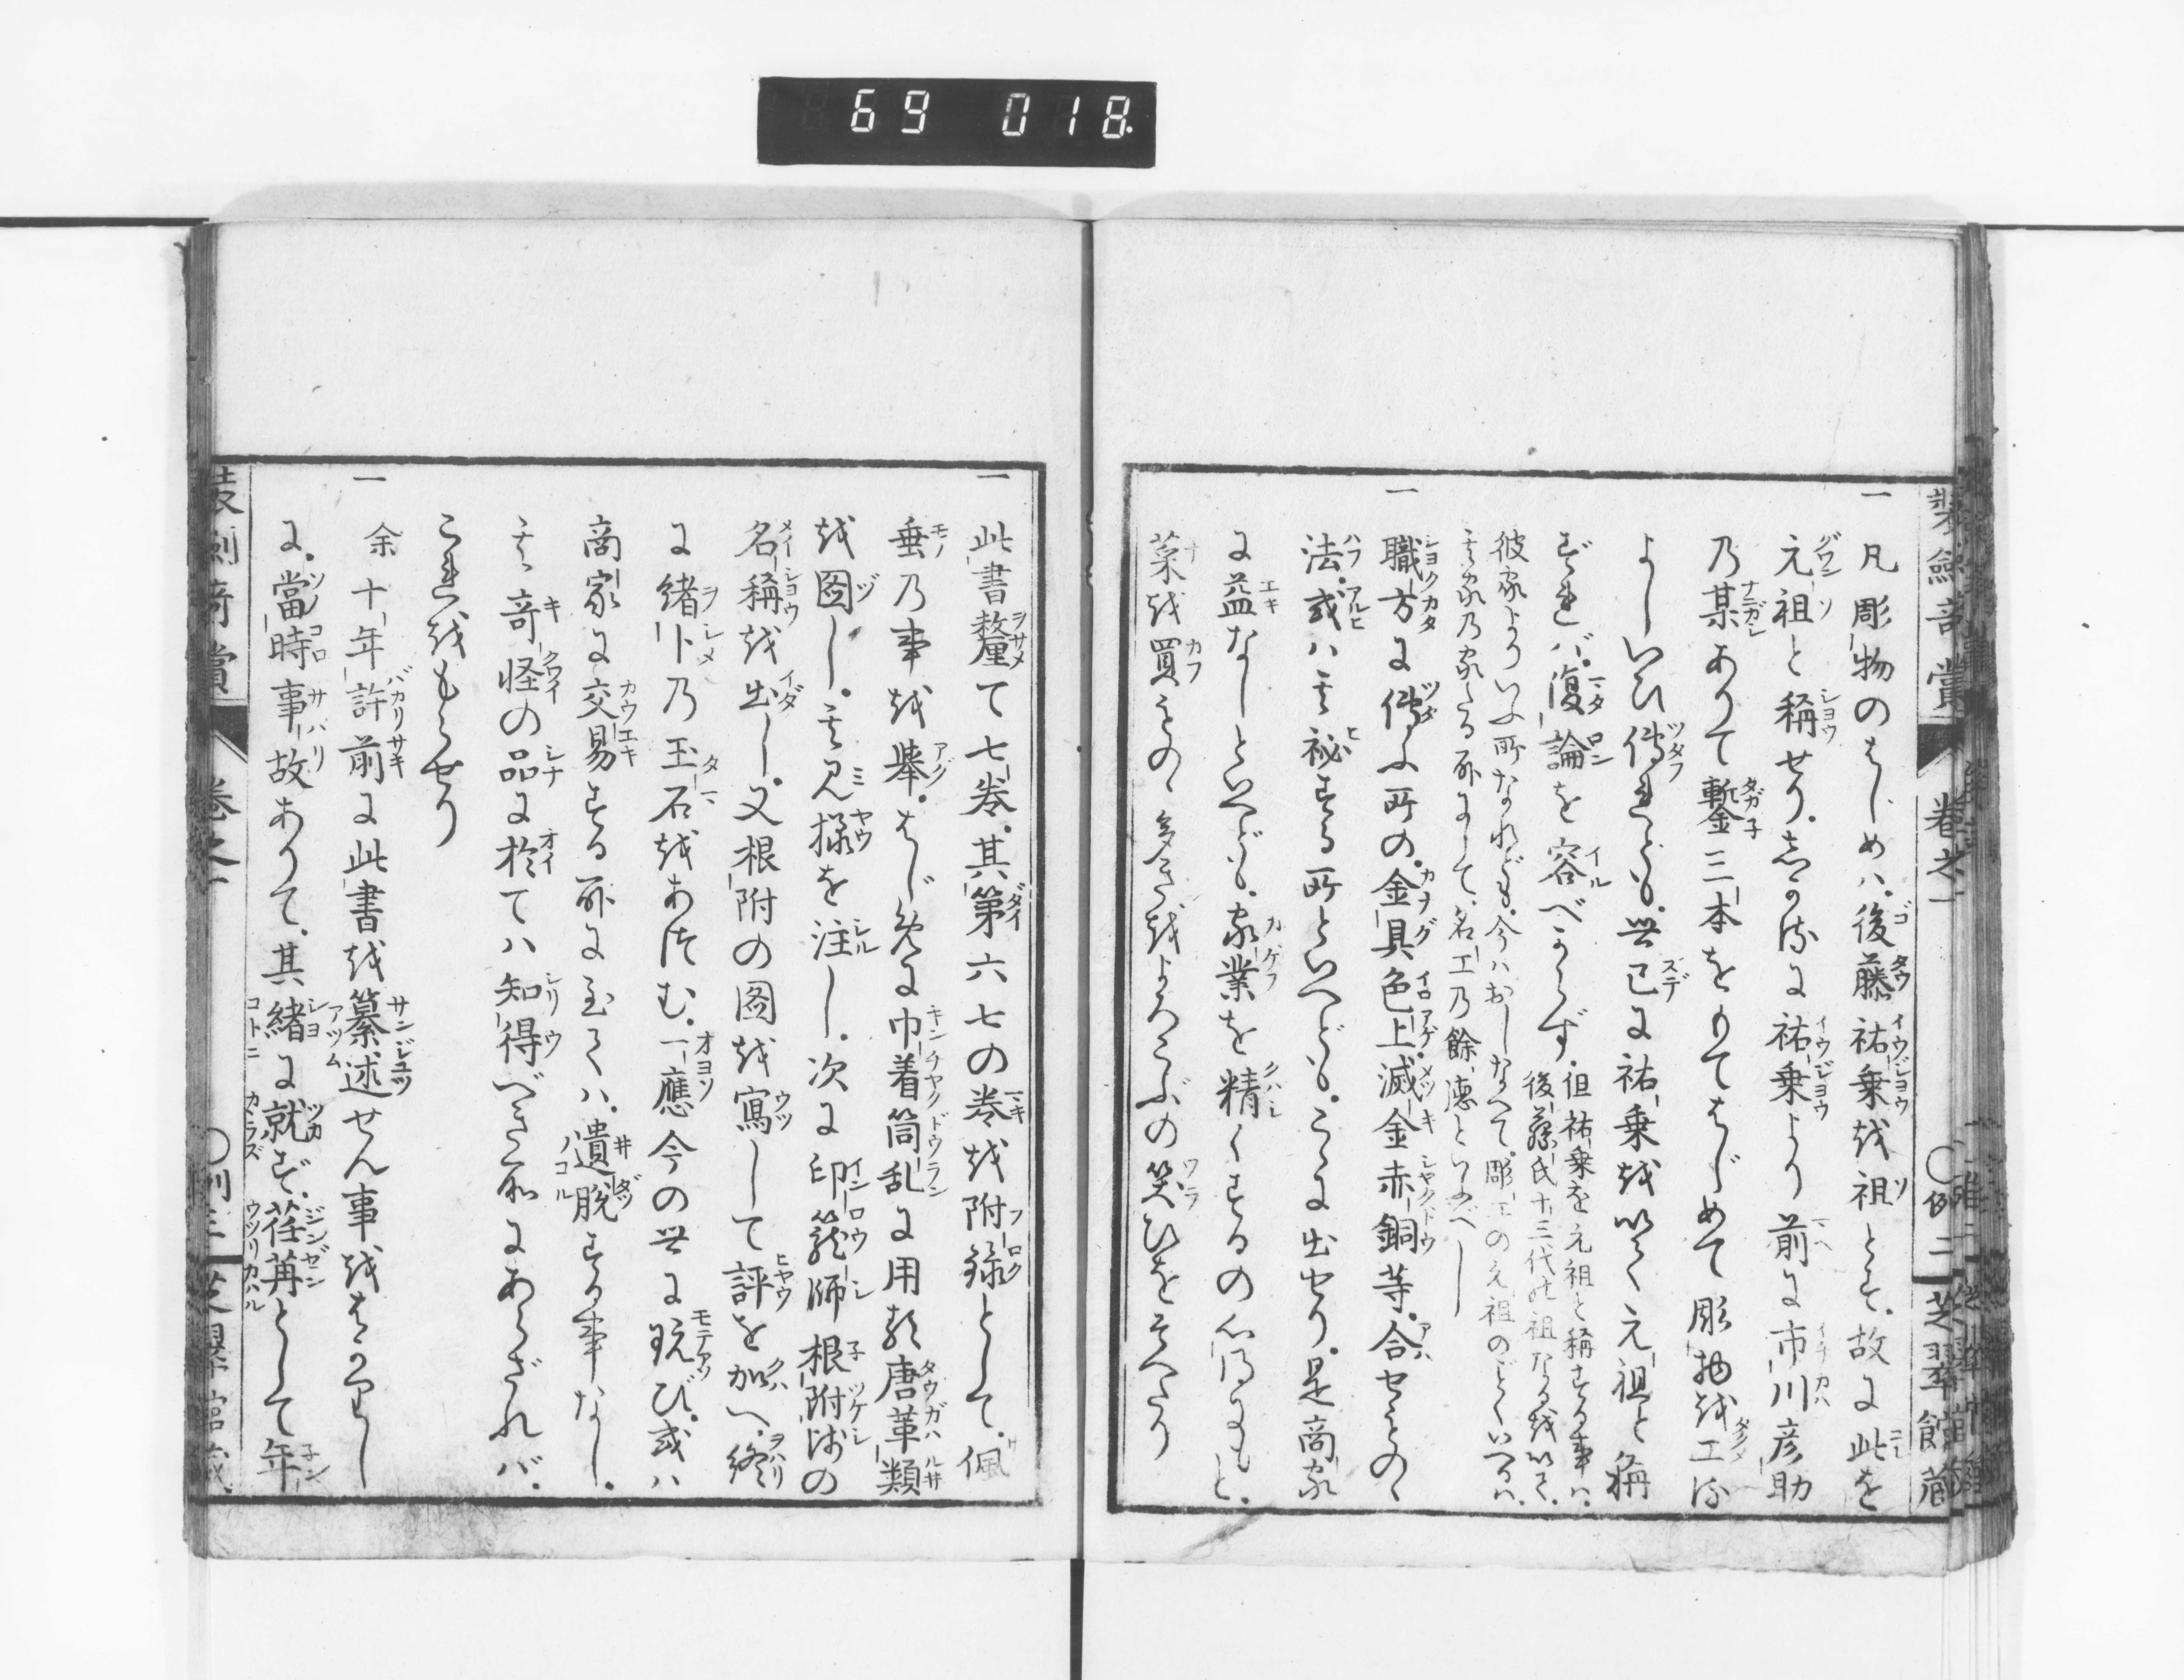 69 018
装劔奇賞 卷之一 〇例二 芝翠館蔵
一 凡彫物のはじめハ。後藤祐乗を祖とす。故に此を
元祖と稱せり。しかるに祐乗より前に市川彦助
乃某ありて鏨三本をもてはじめて彫物を工む
よしいひ傳れども。世已に祐乗を以て元祖と稱
ずれバ。復論を容べからず。
但祐乗を元祖と稱する事ハ。
後藤氏十三代の祖なるを以て。
彼家よりいふ所なれども。今ハおしなべて。彫工の元祖のごとくいへるハ。
其家乃家たる所にして。名工乃餘徳といふべし
一 職方に傳ふ所の。金具色上滅金赤銅等。合せもの
法。或ハ其祕する所といへども。こゝに出せり。是商家
に益なしといへども。家業を精くするの心得にもと。
菜を買ものゝ多きをよろこぶの笑ひをそへたり
一 此書釐て七巻。其第六七の巻を附録として。佩
垂乃事を擧。はじめに巾着筒乱に用る唐革類
を圖し。其見様を注し。次に印籠師根附師の
名稱を出し。又根附の圖を寫して評を加へ。終り
に緒〆乃玉石をあつむ。一應今の世に玩び。或ハ
商家に交易する所に至てハ。遺脱する事なし。
其奇怪の品に於てハ知得べき所にあらざれバ。
これをもらせり
一 余十年許前に此書を纂述せん事をはかりし
に。當時事故ありて。其緒に就ず。荏苒として年
装劔奇賞 卷之一 〇例三 芝翠館蔵